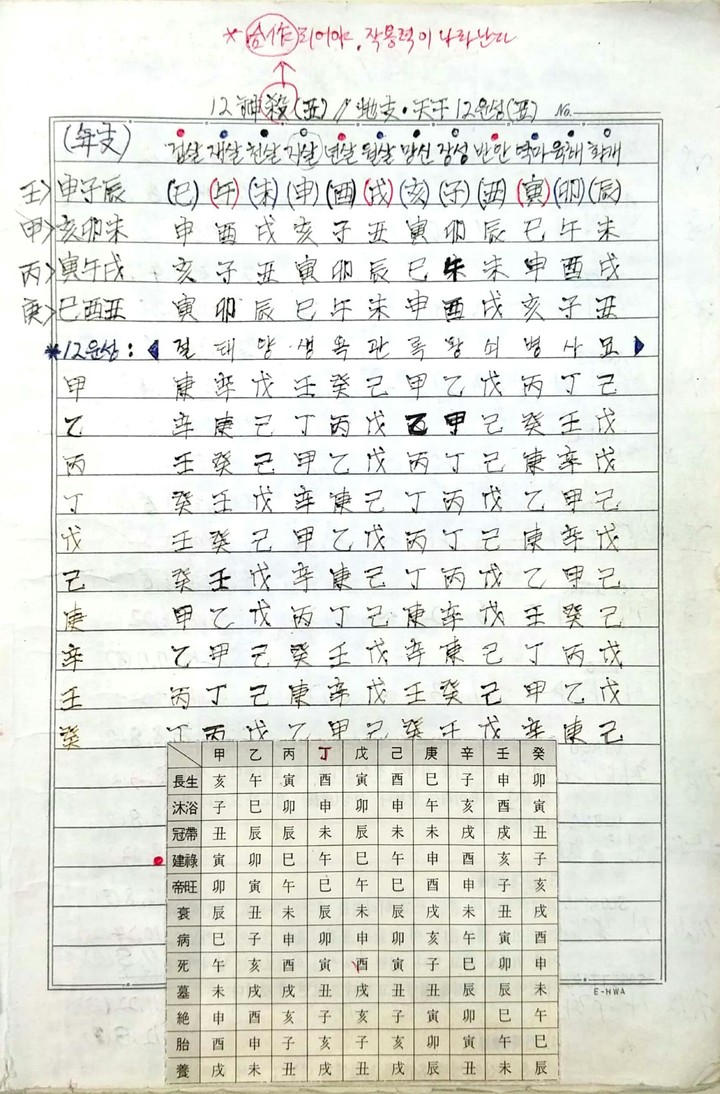 * 合作 되어야, 작용력이 나타난다
12神殺(표) // 地支·天干 12운성(표) No.
(年支) 겁살 재살 천살 지살 년살 월살 망신 장성 반안 역마 육해 화개
壬> 申子辰 (巳) (午) (未) (申) (酉) (戌) (亥) (子) (丑) (寅) (卯) (辰)
甲> 亥卯未 申 酉 戌 亥 子 丑 寅 卯 辰 巳 午 未
丙> 寅午戌 亥 子 丑 寅 卯 辰 巳 午 未 申 酉 戌
庚> 巳酉丑 寅 卯 辰 巳 午 未 申 酉 戌 亥 子 丑
*12운성: 절 태 양 생 욕 관 록 왕 쇠 병 사 묘
甲 庚 辛 戊 壬 癸 己 甲 乙 戊 丙 丁 己
乙 辛 庚 己 丁 丙 戊 乙 甲 己 癸 壬 戊
丙 壬 癸 己 甲 乙 戊 丙 丁 己 庚 辛 戊
丁 癸 壬 戊 辛 庚 己 丁 丙 戊 乙 甲 己
戊 壬 癸 己 甲 乙 戊 丙 丁 己 庚 辛 戊
己 癸 壬 戊 辛 庚 己 丁 丙 戊 乙 甲 己
庚 甲 乙 戊 丙 丁 己 庚 辛 戊 壬 癸 己
辛 乙 甲 己 癸 壬 戊 辛 庚 己 丁 丙 戊
壬 丙 丁 己 庚 辛 戊 壬 癸 己 甲 乙 戊
癸 丁 丙 戊 乙 甲 己 癸 壬 戊 辛 庚 己
甲 乙 丙 丁 戊 己 庚 辛 壬 癸
長生 亥 午 寅 酉 寅 酉 巳 子 申 卯
沐浴 子 巳 卯 申 卯 申 午 亥 酉 寅
冠帶 丑 辰 辰 未 辰 未 未 戌 戌 丑
建祿 寅 卯 巳 午 巳 午 申 酉 亥 子
帝旺 卯 寅 午 巳 午 巳 酉 申 子 亥
衰 辰 丑 未 辰 未 辰 戌 未 丑 戌
病 巳 子 申 卯 申 卯 亥 午 寅 酉
死 午 亥 酉 寅 酉 寅 子 巳 卯 申
墓 未 戌 戌 丑 戌 丑 丑 辰 辰 未
絶 申 酉 亥 子 亥 子 寅 卯 巳 午
胎 酉 申 子 亥 子 亥 卯 寅 午 巳
養 戌 未 丑 戌 丑 戌 辰 丑 未 辰
E-HWA